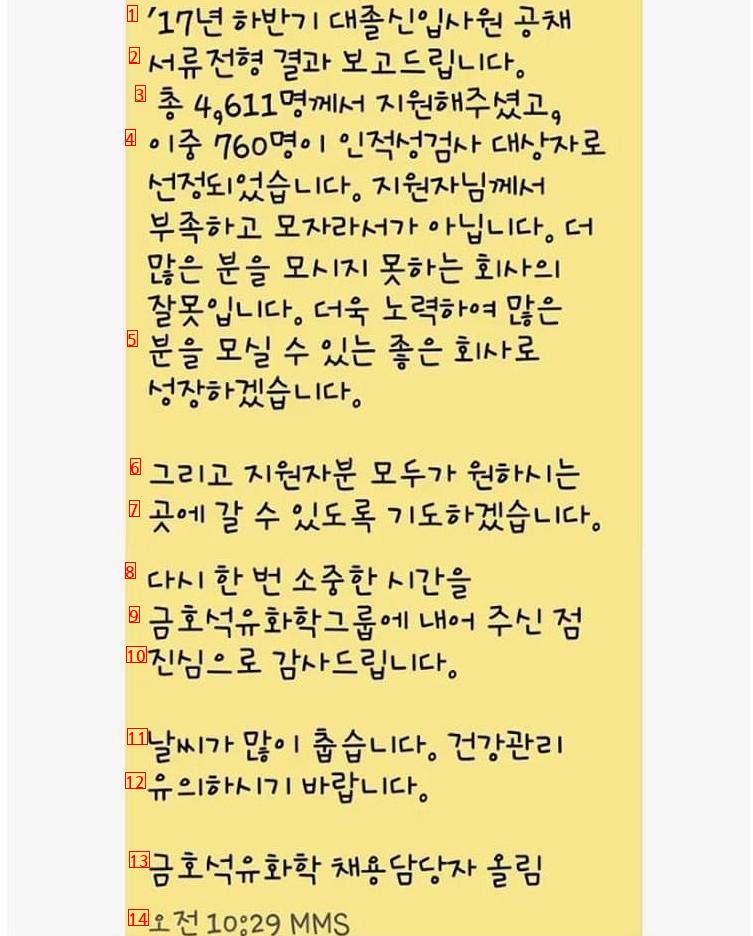 1 '17년 하반기 대졸신입사원 공채
2 서류전형 결과 보고드립니다.
3 총 4,611명께서 지원해주셨고,
4 이중 760명이 인적성검사 대상자로
선정되었습니다. 지원자님께서
부족하고 모자라서가 아닙니다. 더
많은 분을 모시지 못하는 회사의
잘못입니다. 더욱 노력하여 많은
5 분을 모실 수 있는 좋은 회사로
성장하겠습니다.
6 그리고 지원자분 모두가 원하시는
7 곳에 갈 수 있도록 기도하겠습니다.
8 다시 한 번 소중한 시간을
9 금호석유화학그룹에 내어 주신 점
10 진심으로 감사드립니다.
11 날씨가 많이 춥습니다. 건강관리
12 유의하시기 바랍니다.
13 금호석유화학 채용담당자 올림
14 오전 10:29 MMS